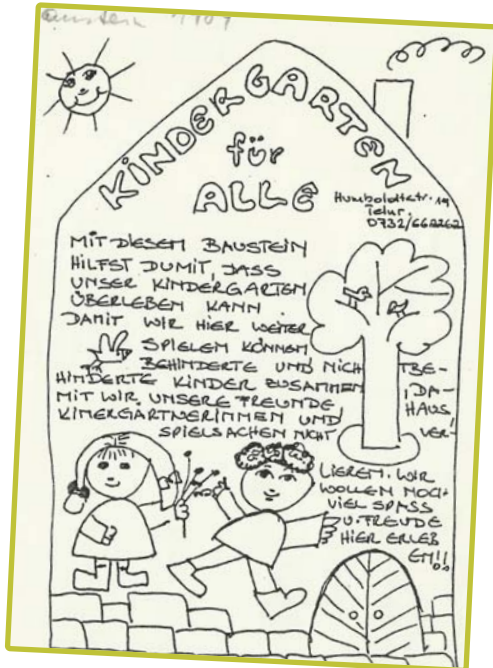 KINDERGARTEN
für
ALLE
Humboldtstr. 19
Telnr.
0732/662262
MIT DIESEM BAUSTEIN
HILFST DU MIT, DASS
UNSER KINDERGARTEN
ÜBERLEBEN KANN.
DAMIT WIR HIER WEITER
SPIELEN KÖNNEN
BEHINDERTE UND NICHTBE-
HINDERTE KINDER ZUSAMMEN, DA-
MIT WIR, UNSERE FREUNDE HAUS,
KINERGÄRTNERINNEN UND
SPIELSACHEN NICHT VER-
LIEREN. WIR
WOLLEN NOCH
VIEL SPASS
U. FREUDE
HIER ERLEB
EN!!